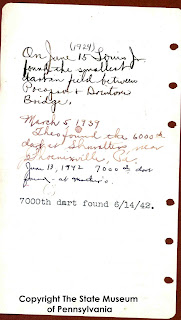 (1929)
On June 15 Louis Jr.
found the smallest
between
Pocopson +
Bridge.
March 5 1939
Theo found the 6000th
dart at near
Phoenixville, Pa.
June 13, 1942 7000th dart
found - at
7000th dart found 6/14/42.
Copyright The State Museum
of Pennsylvania